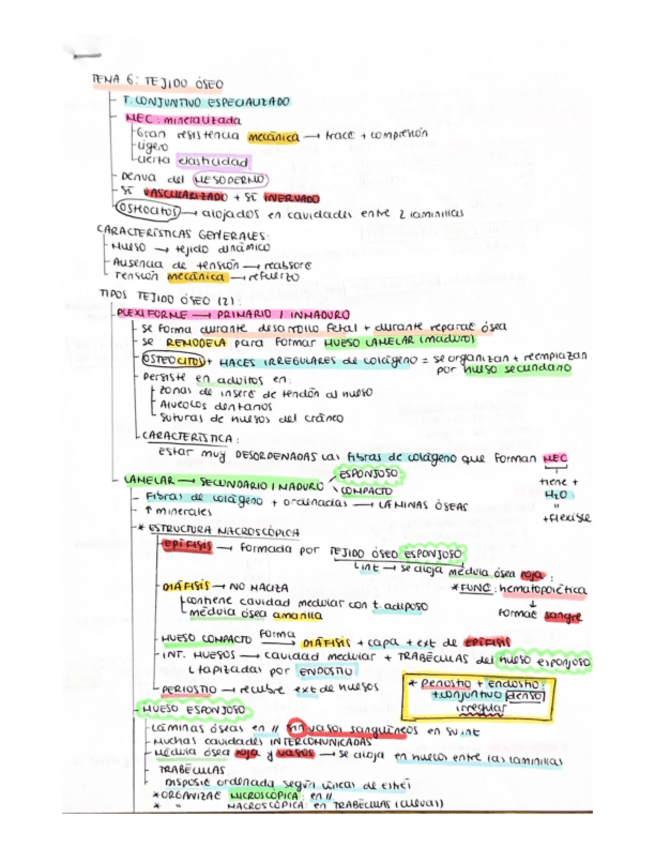 TEMA 6: TEJIDO ÓSEO
T. CONJUNTIVO ESPECIALIZADO
MEC: mineralizada
Gran resistencia mecánica → tracc + compresión
Ligero
cierta elasticidad
Deriva del MESODERMO
SÍ VASCULARIZADO + SÍ INERVADO
OSTEOCITOS → alojados en cavidades entre 2 laminillas
CARACTERÍSTICAS GENERALES:
Hueso → tejido dinámico
Ausencia de tensión → reabsorc
Tensión mecánica → refuerzo
TIPOS TEJIDO ÓSEO (2):
PLEXIFORME → PRIMARIO / INMADURO
se forma durante desarrollo fetal + durante reparac ósea
se REMODELA para formar HUESO LAMELAR (maduro)
OSTEOCITOS + HACES IRREGULARES de colágeno = se organizan + reemplazan
por hueso secundario
Persiste en adultos en:
zonas de inserc de tendón al hueso
Alveolos dentarios
Suturas de huesos del cráneo
CARACTERÍSTICA:
estar muy DESORDENADAS las fibras de colágeno que forman MEC
tiene +
H₂O
"
+flexible
LAMELAR → SECUNDARIO / MADURO
ESPONJOSO
COMPACTO
Fibras de colágeno + ordenadas → LÁMINAS ÓSEAS
↑ minerales
* ESTRUCTURA MACROSCÓPICA
EPÍFISIS → formada por TEJIDO ÓSEO ESPONJOSO
int → se aloja médula ósea roja:
* FUNC: hematopoiética
↓
formac sangre
DIÁFISIS → NO MACIZA
contiene cavidad medular con t. adiposo
médula ósea amarilla
HUESO COMPACTO forma → DIÁFISIS + capa + ext de EPÍFISIS
INT. HUESOS → cavidad medular + TRABÉCULAS del hueso esponjoso
tapizadas por ENDOSTIO
PERIOSTIO → recubre ext de huesos
* periostio + endostio:
t. conjuntivo denso
irregular
HUESO ESPONJOSO
Láminas óseas en // sin vasos sanguíneos en su int
Muchas cavidades INTERCOMUNICADAS
Médula ósea roja y vasos → se aloja en huecos entre las laminillas
TRABÉCULAS
Disposic ordenada según líneas de
* ORGANIZAC MICROSCÓPICA: en //
* " MACROSCÓPICA: en TRABÉCULAS